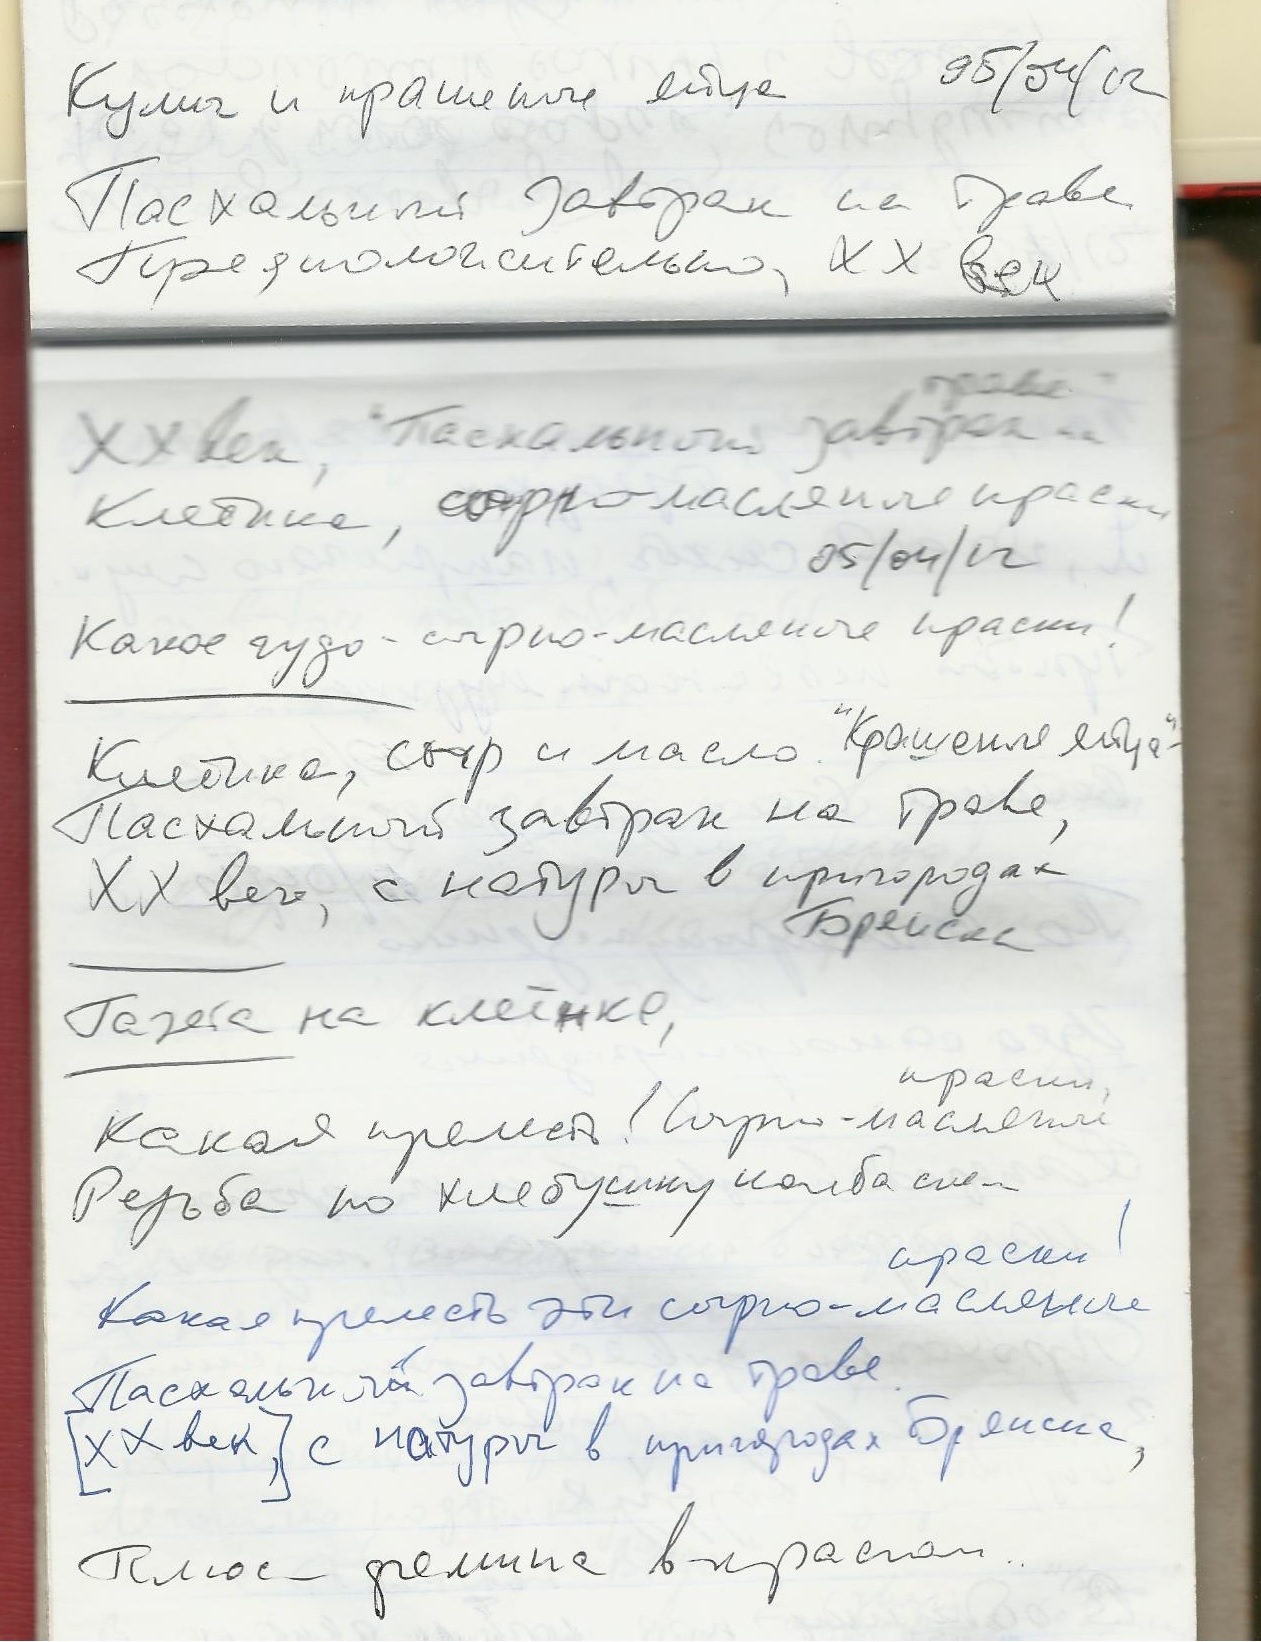 Куличи и крашеные яйца 05/04/12
Пасхальный завтрак на траве
Предположительно, XX век
траве"
XX век, "Пасхальный завтрак на
Клеёнка, сырно-масляные краски
05/04/12
Какое чудо - сырно-масляные краски!
Клеёнка, сыр и масло. "Крашеные яйца"-
Пасхальный завтрак на траве,
XX век, с натуры в пригородах
Брянска
Газета на клеёнке,
краски,
Какая прелесть! Сырно-масляные
Резьба по хлебушку колбаской
краски!
Какая прелесть эти сырно-масляные
Пасхальный завтрак на траве.
[XX век,] с натуры в пригородах Брянска,
Плюс в красках..